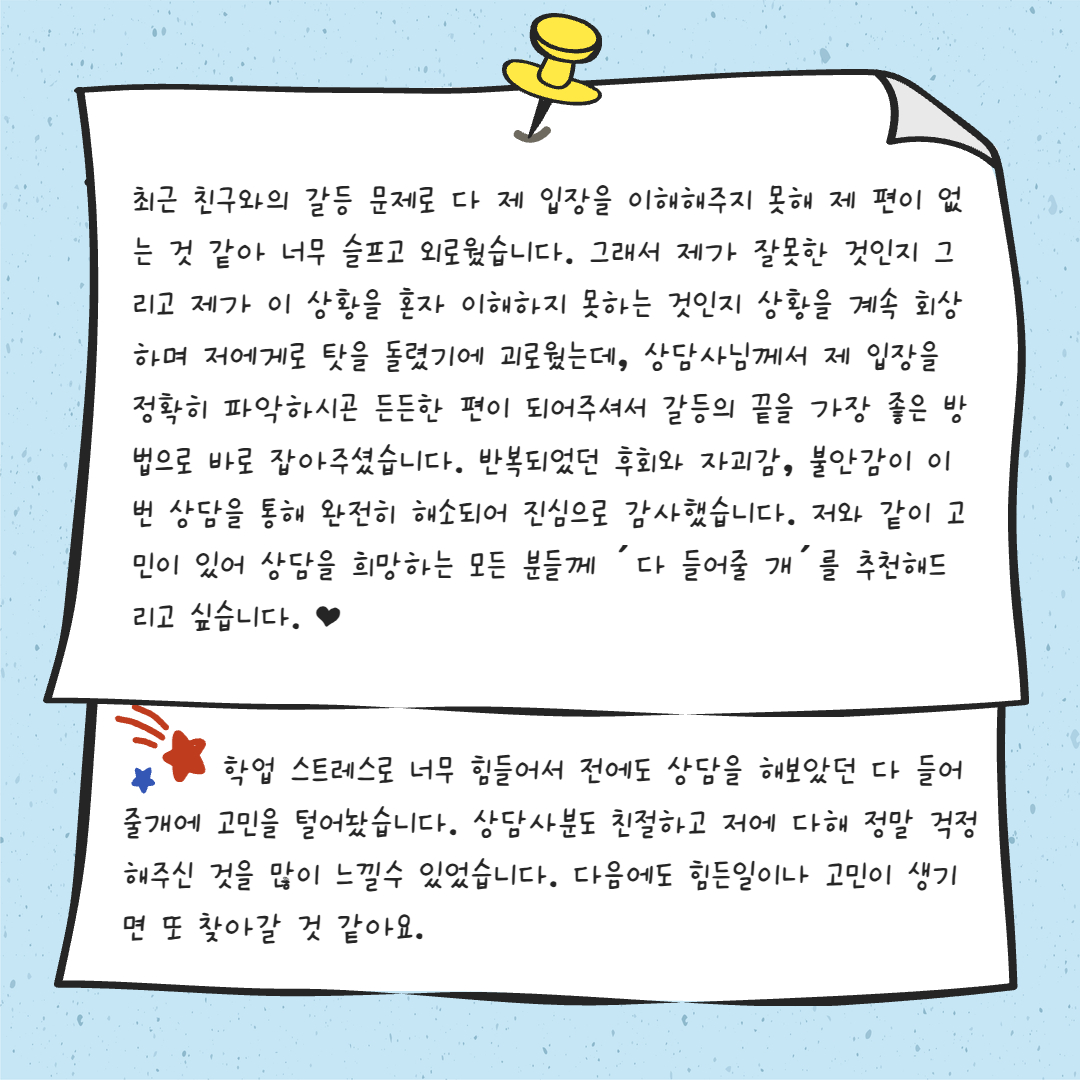 최근 친구와의 갈등 문제로 다 제 입장을 이해해주지 못해 제 편이 없
는 것 같아 너무 슬프고 외로웠습니다. 그래서 제가 잘못한 것인지 그
리고 제가 이 상황을 혼자 이해하지 못하는 것인지 상황을 계속 회상
하며 저에게로 탓을 돌렸기에 괴로웠는데, 상담사님께서 제 입장을
정확히 파악하시곤 든든한 편이 되어주셔서 갈등의 끝을 가장 좋은 방
법으로 바로 잡아주셨습니다. 반복되었던 후회와 자괴감, 불안감이 이
번 상담을 통해 완전히 해소되어 진심으로 감사했습니다. 저와 같이 고
민이 있어 상담을 희망하는 모든 분들께 ´다 들어줄 개´를 추천해드
리고 싶습니다. ♥
학업 스트레스로 너무 힘들어서 전에도 상담을 해보았던 다 들어
줄개에 고민을 털어놨습니다. 상담사분도 친절하고 저에 다해 정말 걱정
해주신 것을 많이 느낄수 있었습니다. 다음에도 힘든일이나 고민이 생기
면 또 찾아갈 것 같아요.